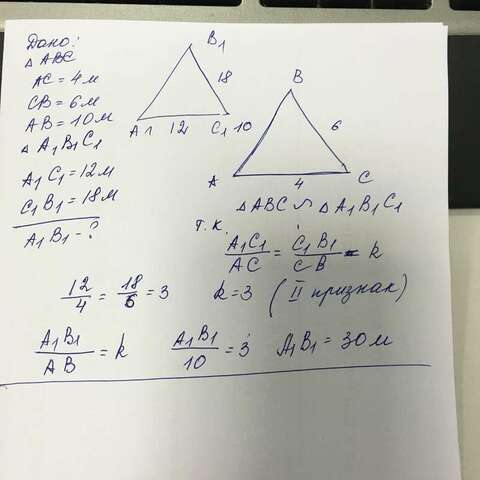 Дано:
△ ABC
AC = 4 м
CB = 6 м
AB = 10 м
△ A1B1C1
A1C1 = 12 м
C1B1 = 18 м
A1B1 - ?
B1
18
A1 12 C1
B
10 6
A 4 C
△ABC ∽ △A1B1C1
т.к.
A1C1/AC = C1B1/CB = k
12/4 = 18/6 = 3 k = 3 (II признак)
A1B1/AB = k A1B1/10 = 3 A1B1 = 30 м